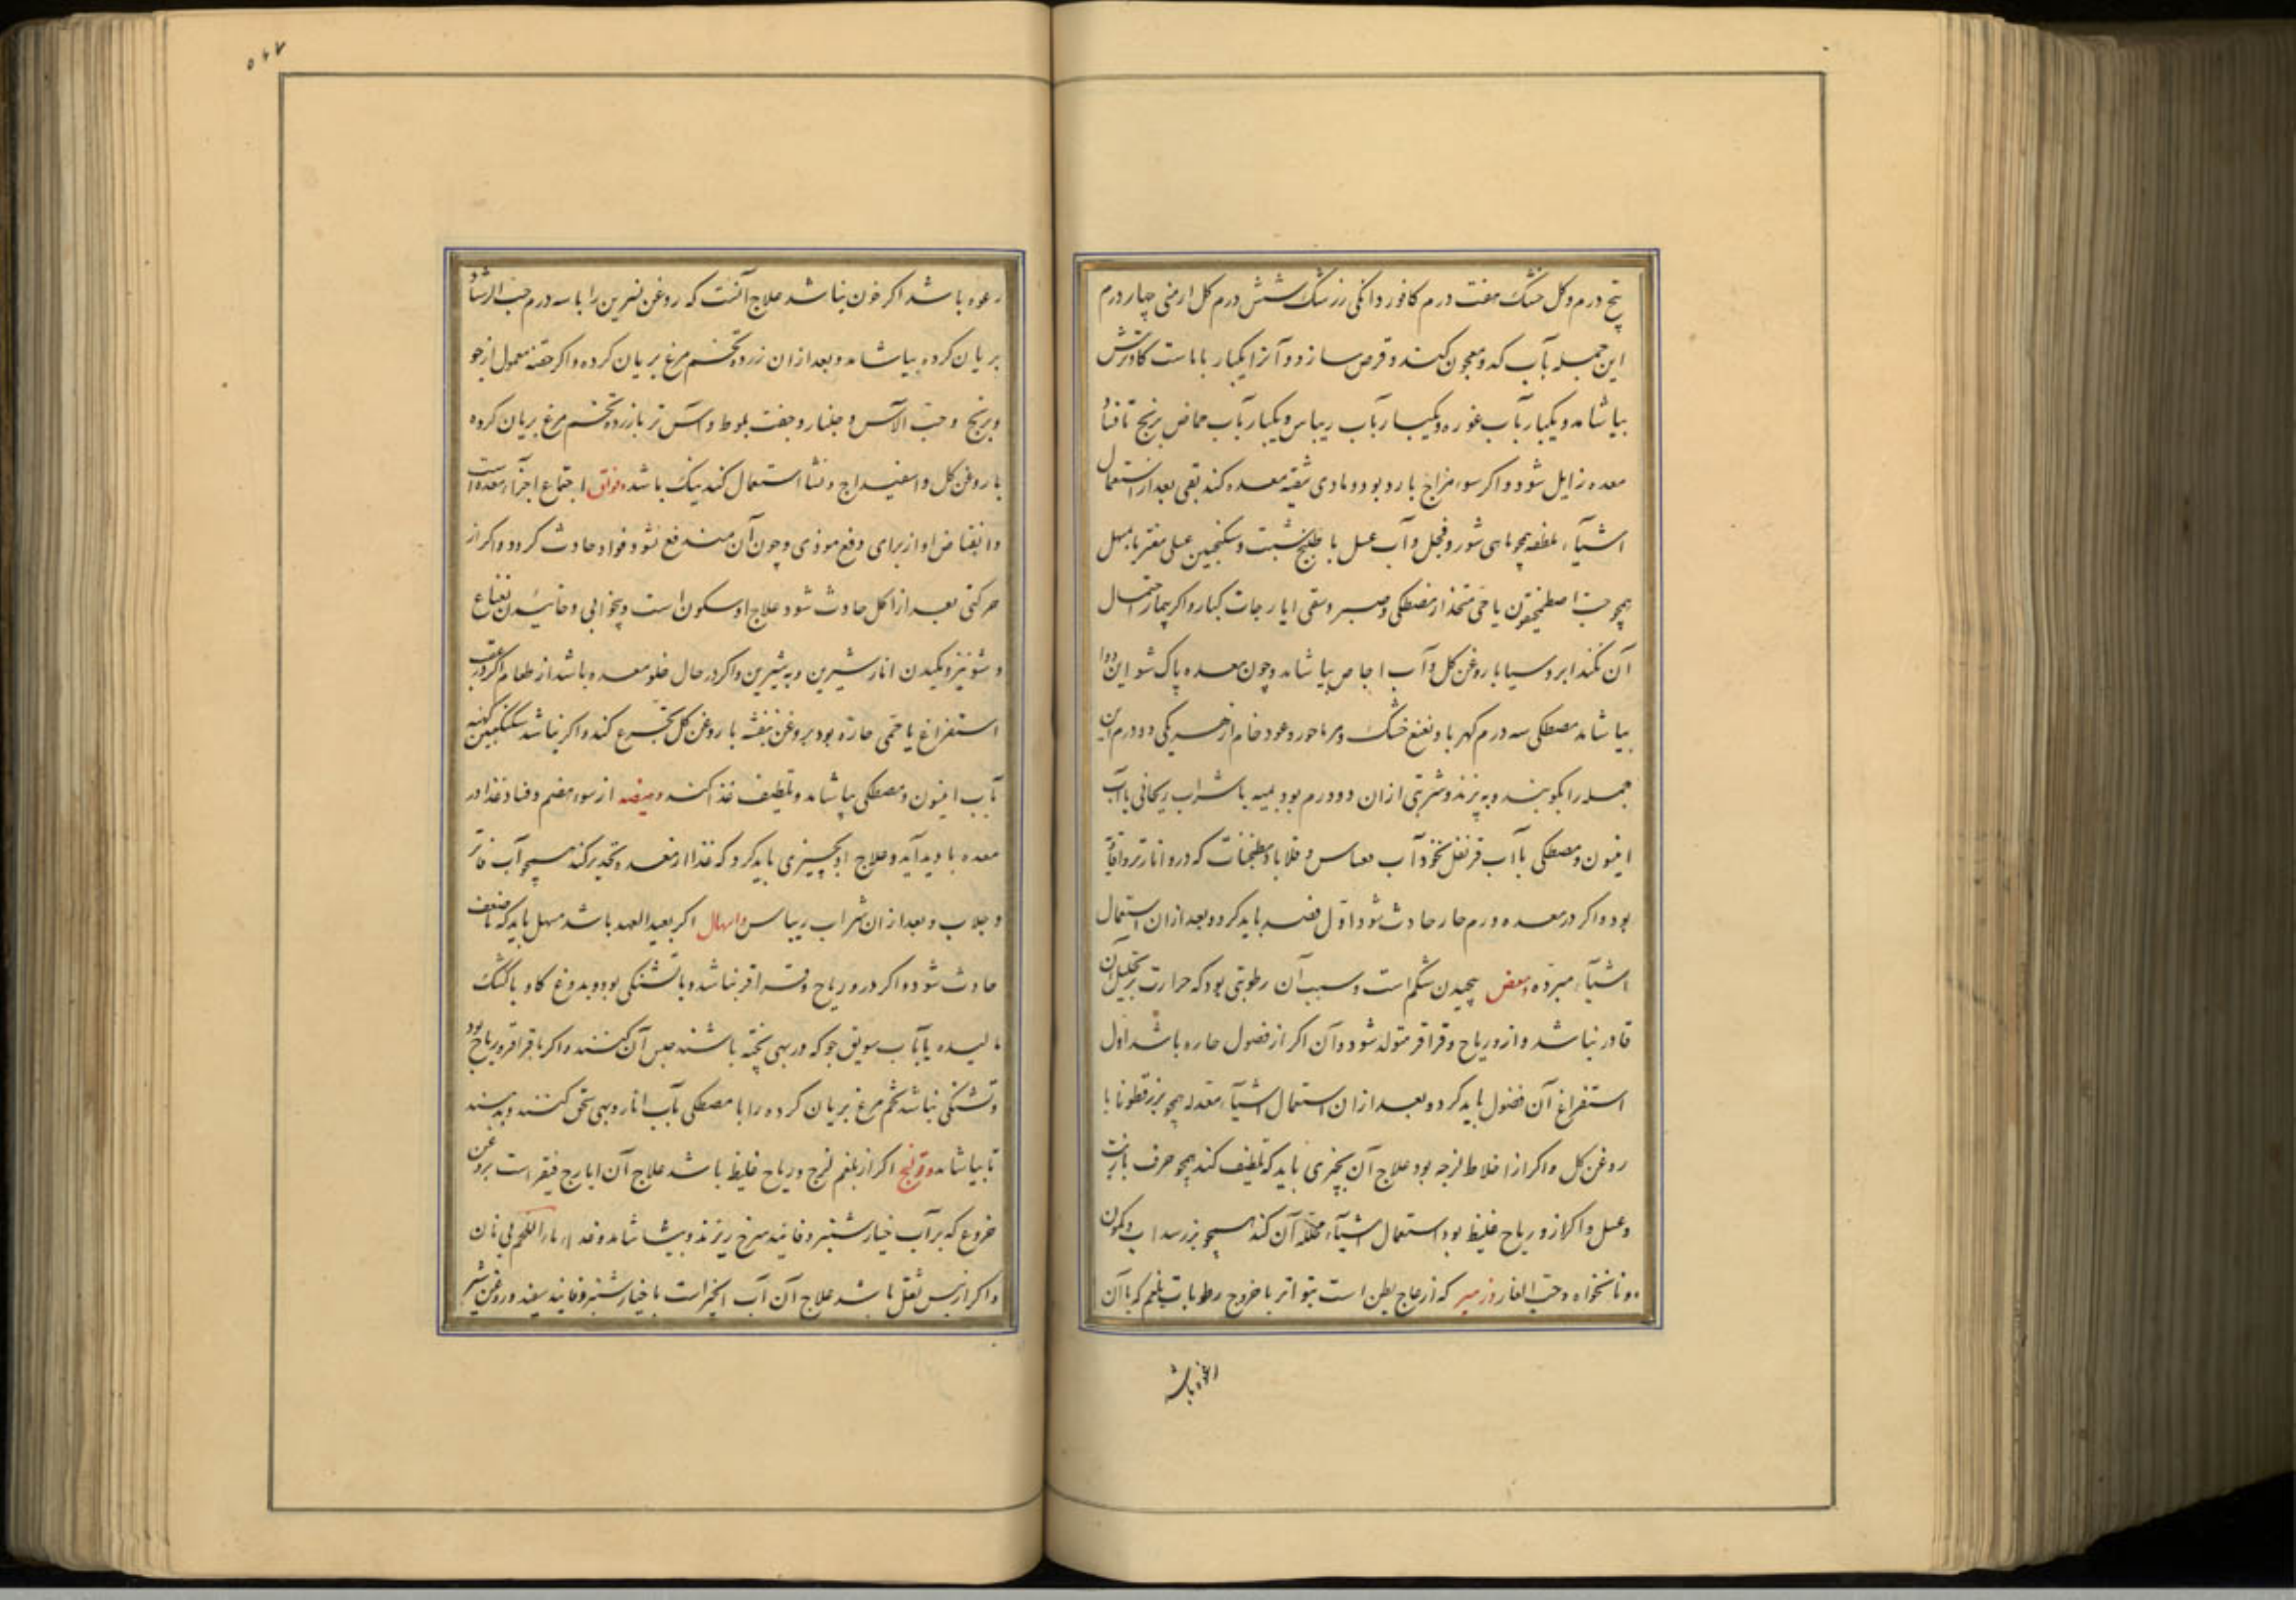 پنج درم و کل خشک هفت درم کافور دانکی زرشک شش درم کل ارمنی چهار درم
این جمله بآب کدو معجون کنند و قرص سازد و آنرا یکبار با ماست کاو ترش
بیاشامد و یکبار بآب غوره و یکبار بآب ریباس و یکبار بآب حماض برنج تا فساد
معده زایل شود و اکر سوء مزاج بارد بود و مادی تنقیه معده کند بقی بعد از استعمال
اشیآء ملطفه همچو ماهی شور و فجل و آب عسل با طبیخ شبت و سکنجبین عسلی مفتر یا بمسهل
همچو حب اصطمخیقون یا حبی متخذ از مصطکی و صبر و سقی ایارجات کبار و اکر بیمار احتمال
آن نکند ابروسیا با روغن کل و آب اجاص بیاشامد و چون معده پاک شو این دوا
بیاشامد مصطکی سه درم کهربا و نعنع خشک و مرماحور و عود خام از هر یکی دو درم این
جمله را بکوبند و به پزند و شربتی از آن دو درم بود بمیبه یا شراب ریحانی یا آب
انیسون و مصطکی یا آب قرنفل نخودآب و قلایا و مطنجنات که درو انار تر و افاویه
بود و اکر در معده ورم حار حادث شود اول فصد باید کرد و بعد از آن استعمال
اشیآء مبرده و مغص پیچیدن شکم است و سبب آن رطوبتی بود که حرارت بر تحلیل آن
قادر نباشد و ازو ریاح و قراقر متولد شود و آن اکر از فضول حاره باشد اول
استفراغ آن فضول باید کرد و بعد از آن استعمال اشیآء معتدله همچو بزرقطونا با
روغن کل و اکر از اخلاط لزجه بود علاج آن بچیزی باید که تلطیف کند همچو حرف با زیت
و عسل و اکر از و ریاح غلیظ بود استعمال اشیآء محلله آن کند همچو بزر سداب و کمون
و نانخواه و حب الغار و زحیر که ازعاج بطن است بتواتر با خروج رطوبات بلغم که با آن
رغوه باشد اکر خون نباشد علاج آنست که روغن نسرین را با سه درم حب الرشاد
بریان کرده بیاشامد و بعد از آن زرده تخم مرغ بریان کرده و اکر حقنه معمول از جو
و برنج و حب الآس و جلنار و جفت بلوط و آس تر با زرده تخم مرغ بریان کرده
با روغن کل و اسفیداج و نشا استعمال کند نیک باشد و فواق اجتماع اجزآء معده است
و انقباض او از برای دفع موذی و چون آن مندفع نشود فواق حادث کردد و اکر از
حرکتی بعد از اکل حادث شود علاج او سکون است و بیخوابی و خائیدن نعناع
و شونیز و مکیدن انار شیرین و به شیرین و اکر در حال خلو معده باشد از طعام اکر در عقب
استفراغ یا حمی حاره بود بروغن بنفشه یا روغن کل تجرع کند و اکر نباشد سکنجبین کهنه
بآب انیسون و مصطکی بیاشامد و تلطیف غذا کند و هیضه از سوء هضم و فساد غذا در
معده بادید آید و علاج او بچیزی باید کرد که غذا از معده تحدیر کند همچو آب فاتر
و جلاب و بعد از آن شراب ریباس و اسهال اکر بعید العهد باشد مسهل باید که تا ضعف
حادث شود و اکر درو ریاح و قراقر نباشد و با تشنکی بود و بدوغ کاو با کشک
مالیده یا بآب سویق جو که در بهی پخته باشند حبس آن کنند و اکر با قراقر و ریاح بود
و تشنکی نباشد تخم مرغ بریان کرده را با مصطکی بآب انار و بهی سحق کنند و بدهند
تا بیاشامد و قولنج اکر از بلغم لزج و ریاح غلیظ باشد علاج آن ایارج فیقر است بروغن
خروع که بر آب خیارشنبر و فانید سرخ ریزند و بیاشامد و غذا مآء اللحم بی نان
و اکر از یبس ثفل باشد علاج آن آب انجیر است با خیارشنبر و فانید سفید و روغن شیر